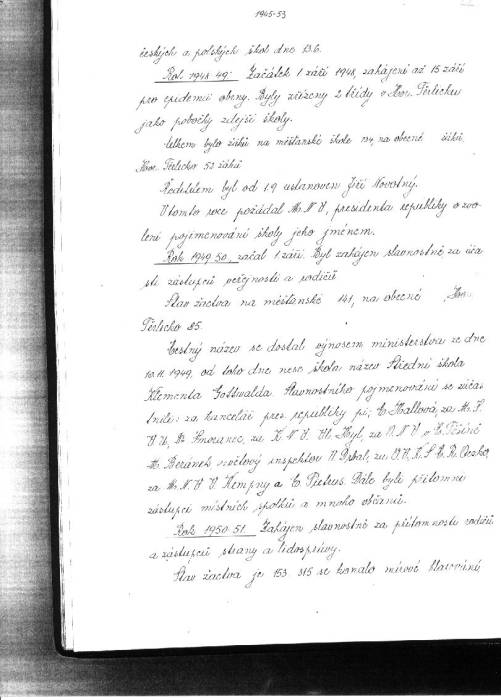 1945-53
českých a polských škol dne 13.6.
Rok 1948-49: Začátek 1 září 1948, zahájení až 15 září
pro epidemii obrny. Byly zřízeny 2 třídy v Hor. Těrlicku
jako pobočky zdejší školy.
Celkem bylo žáků na měšťanské škole na obecné žáků
Hor. Těrlicko 53 žáků
Ředitelem byl od 1.9 ustanoven Jiří Novotný.
V tomto roce požádal M.N.V. presidenta republiky o svo-
lení pojmenování školy jeho jménem.
Rok 1949-50, začal 1 září. Byl zahájen slavnostně za úča-
sti zástupců veřejnosti a rodičů
Stav žactva na měšťanské 141, na obecné Hor.
Těrlicko 85.
Čestný název se dostal výnosem ministerstva ze dne
10.11.1949, od toho dne nese škola název Střední škola
Klementa Gottwalda. Slavnostního pojmenování se zúčast-
nili: za kancelář pres. republiky pí. Hallová, za
Smoranec, za K.N.V. Hyl, za O.N.V. v Č. Těšíně
Beránek školový inspektor
za M.N.V. V. Kempný a C. Pietrus. Dále byli přítomni
zástupci místních spolků a mnoho občanů.
Rok 1950-51. Zahájen slavnostně za přítomnosti rodičů
a zástupců strany a lidosprávy.
Stav žactva je 153 31.5 se konalo mírové hlasování,